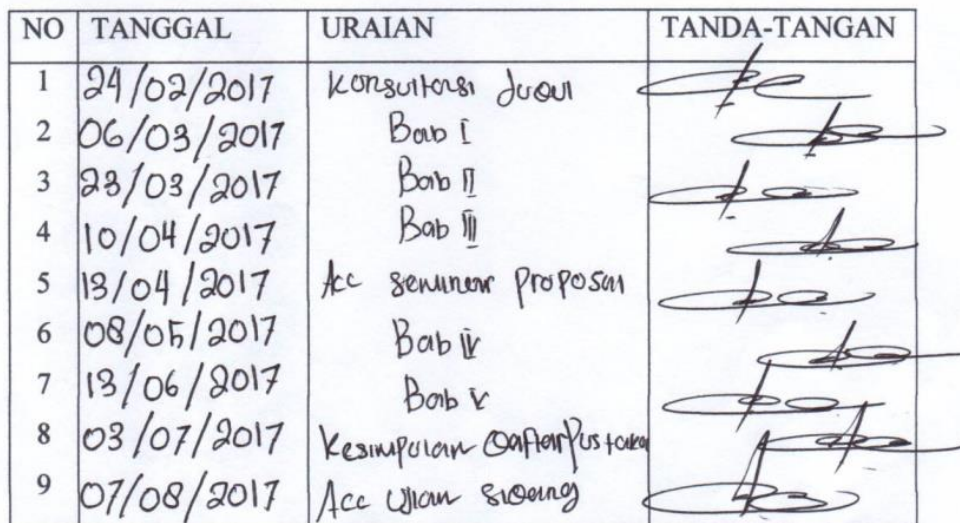 NO TANGGAL URAIAN TANDA-TANGAN
1 24/02/2017 Konsultasi Judul
2 06/03/2017 Bab I
3 23/03/2017 Bab II
4 10/04/2017 Bab III
5 13/04/2017 Acc seminar proposal
6 08/05/2017 Bab IV
7 13/06/2017 Bab V
8 03/07/2017 Kesimpulan Daftar Pustaka
9 07/08/2017 Acc Ujian sidang